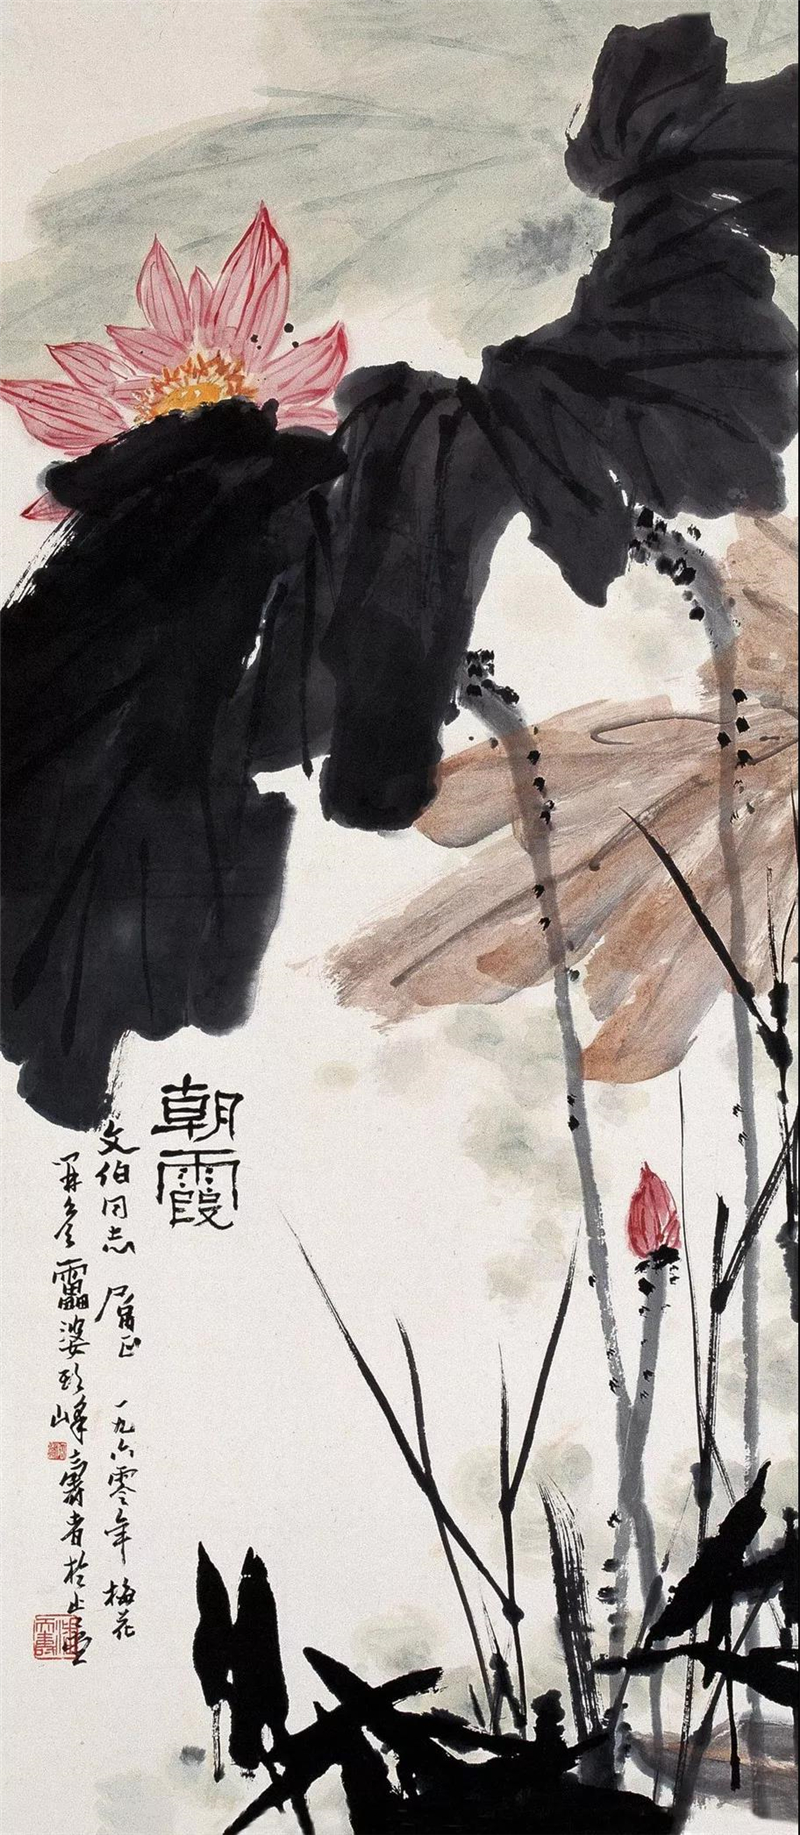 朝霞
文伯同志属正 一九六零年 梅花
开冬 雷婆头峰寿者于止止室